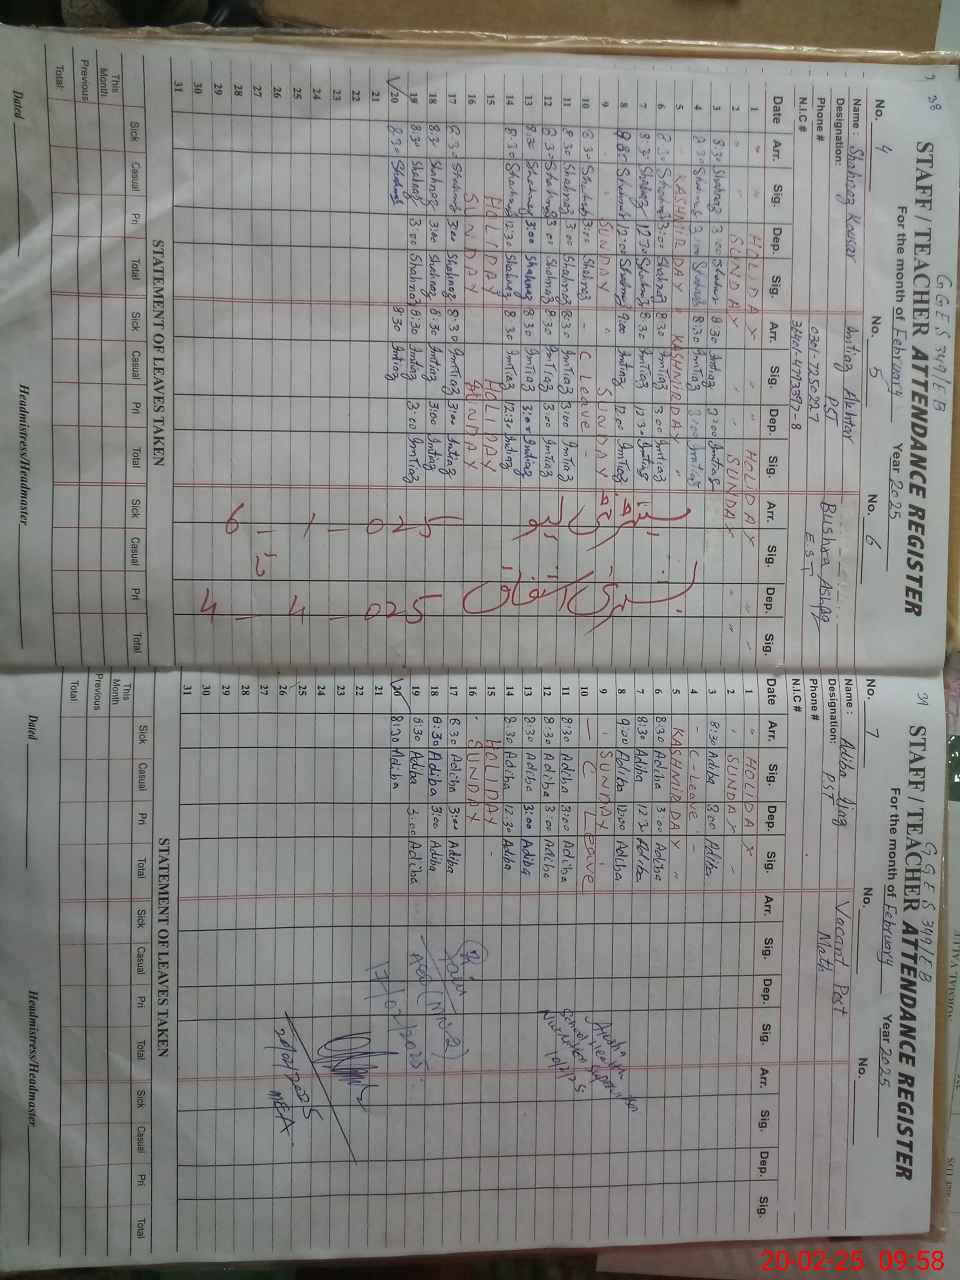 38
G G E S 349/EB
STAFF / TEACHER ATTENDANCE REGISTER
For the month of February Year 2025
No. 4 No. 5 No. 6
Name : Shahnaz Kousar Imtiaz Akhtar Bushra
Designation: PST EST
Phone # 0301-7250227
N.I.C #
Date Arr. Sig. Dep. Sig. Arr. Sig. Dep. Sig. Arr. Sig. Dep. Sig.
1 " " HOLIDAY " " HOLIDAY " "
2 " " SUNDAY " " SUNDAY " "
3 8:30 Shahnaz 3:00 Shahnaz 8:30 Imtiaz 3:00 Imtiaz
4 8:30 Shahnaz 3:00 Shahnaz 8:30 Imtiaz 3:00 Imtiaz
5 KASHMIR DAY " KASHMIR DAY "
6 8:30 Shahnaz 3:00 Shahnaz 8:30 Imtiaz 3:00 Imtiaz
7 8:30 Shahnaz 12:30 Shahnaz 8:30 Imtiaz 12:30 Imtiaz
8 9:00 Shahnaz 12:00 Shahnaz 9:00 Imtiaz 12:00 Imtiaz
9 " SUNDAY " SUNDAY
10 8:30 Shahnaz 3:00 Shahnaz - C Leave -
11 8:30 Shahnaz 3:00 Shahnaz 8:30 Imtiaz 3:00 Imtiaz
12 8:30 Shahnaz 3:00 Shahnaz 8:30 Imtiaz 3:00 Imtiaz
13 8:30 Shahnaz 3:00 Shahnaz 8:30 Imtiaz 3:00 Imtiaz
14 8:30 Shahnaz 12:30 Shahnaz 8:30 Imtiaz 12:30 Imtiaz
15 HOLIDAY HOLIDAY
16 SUNDAY SUNDAY
17 8:30 Shahnaz 3:00 Shahnaz 8:30 Imtiaz 3:00 Imtiaz
18 8:30 Shahnaz 3:00 Shahnaz 8:30 Imtiaz 3:00 Imtiaz
19 8:30 Shahnaz 3:00 Shahnaz 8:30 Imtiaz 3:00 Imtiaz
20 8:30 Shahnaz 8:30 Imtiaz
21
22
23
24
25
26
27
28
29
30
31
6 - 1 - 025
4 - 4 - 025
STATEMENT OF LEAVES TAKEN
Sick Casual Pri Total Sick Casual Pri Total Sick Casual Pri Total
This Month
Previous
Total
Dated Headmistress/Headmaster
39
G G E S 349/EB
STAFF / TEACHER ATTENDANCE REGISTER
For the month of February Year 2025
No. 7 No. No.
Name : Adiba Vacant Post
Designation: PST Math
Phone #
N.I.C #
Date Arr. Sig. Dep. Sig. Arr. Sig. Dep. Sig. Arr. Sig. Dep. Sig.
1 " HOLIDAY "
2 " SUNDAY "
3 8:30 Adiba 3:00 Adiba
4 - C-Leave -
5 KASHMIR DAY "
6 8:30 Adiba 3:00 Adiba
7 8:30 Adiba 12:30 Adiba
8 9:00 Adiba 12:00 Adiba
9 " SUNDAY
10 - C Leave
11 8:30 Adiba 3:00 Adiba
12 8:30 Adiba 3:00 Adiba
13 8:30 Adiba 3:00 Adiba
14 8:30 Adiba 12:30 Adiba
15 HOLIDAY
16 SUNDAY
17 8:30 Adiba 3:00 Adiba
18 8:30 Adiba 3:00 Adiba
19 8:30 Adiba 3:00 Adiba
20 8:30 Adiba
21
22
23
24
25
26
27
28
29
30
31
17/02/2025
20/02/2025
MEA
STATEMENT OF LEAVES TAKEN
Sick Casual Pri Total Sick Casual Pri Total Sick Casual Pri Total
This Month
Previous
Total
Dated Headmistress/Headmaster
20-02-25 09:58